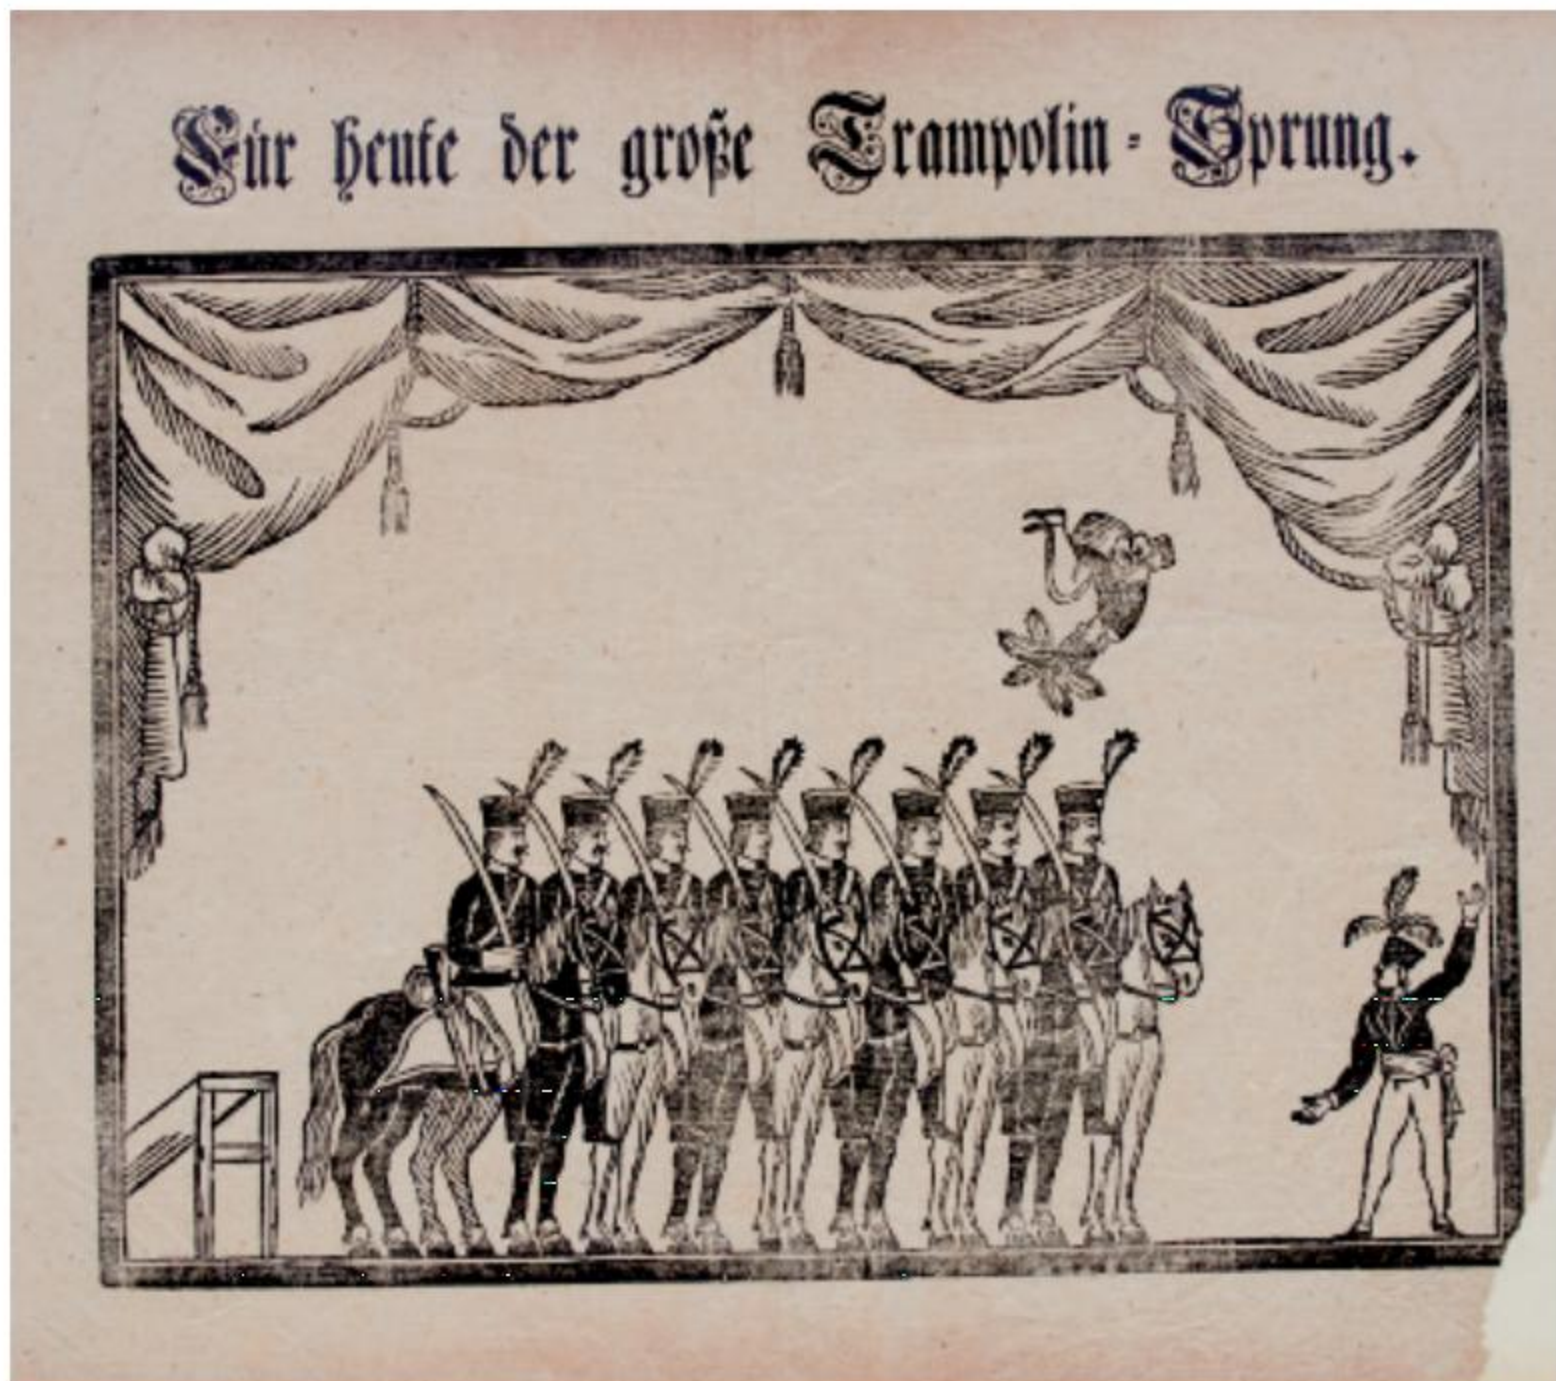 Für heute der große Trampolin-Sprung.